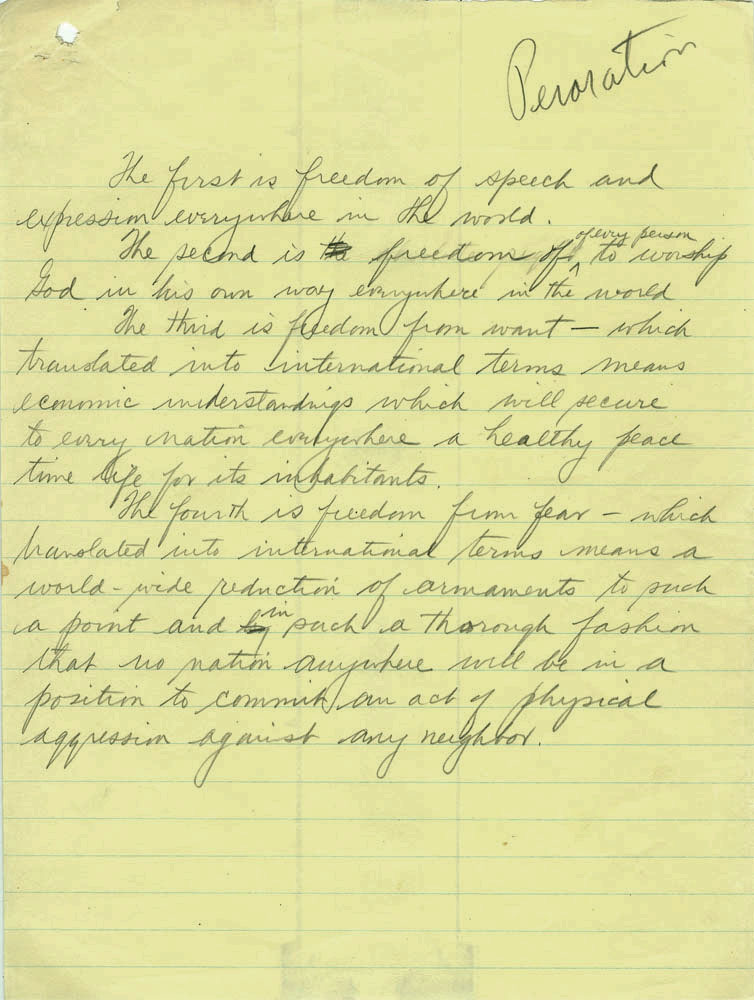 Peroration
The first is freedom of speech and
expression everywhere in the world.
of every person
The second is the freedom of to worship
God in his own way everywhere in the world
The third is freedom from want – which
translated into international terms means
economic understandings which will secure
to every nation everywhere a healthy peace
time life for its inhabitants.
The fourth is freedom from fear – which
translated into international terms means a
world-wide reduction of armaments to such
a point and by in such a thorough fashion
that no nation anywhere will be in a
position to commit an act of physical
aggression against any neighbor.